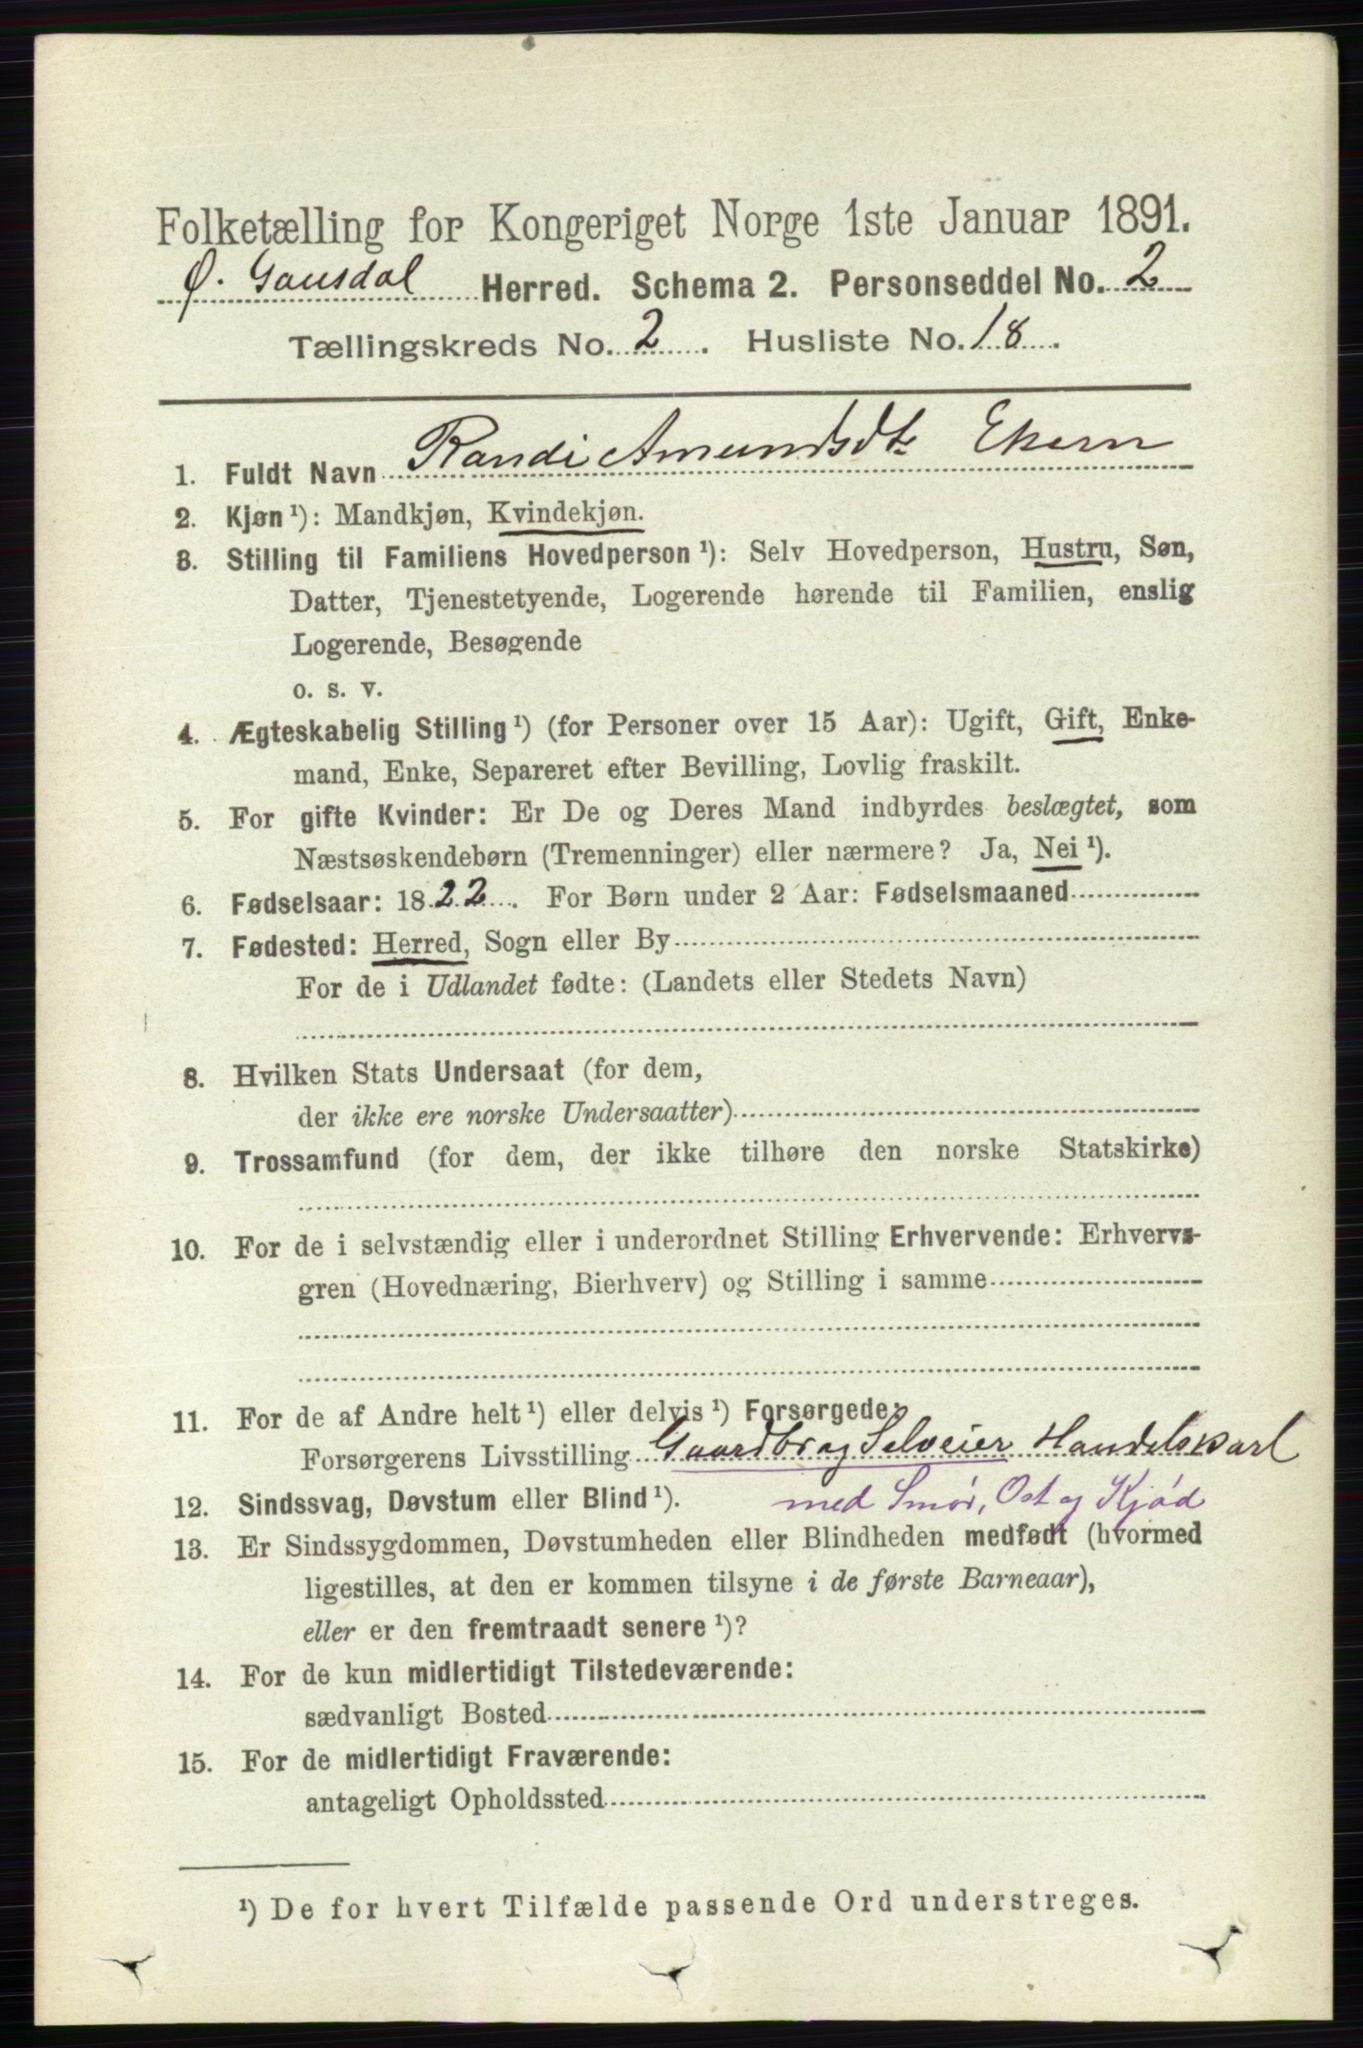 Folketælling for Kongeriget Norge 1ste Januar 1891.
Ø. Gausdal Herred. Schema 2. Personseddel No. 2
Tællingskreds No. 2. Husliste No. 18.
1. Fuldt Navn Randi Amundsdt. Ekern
2. Kjøn ¹): Mandkjøn, Kvindekjøn.
3. Stilling til Familiens Hovedperson ¹): Selv Hovedperson, Hustru, Søn,
Datter, Tjenestetyende, Logerende hørende til Familien, enslig
Logerende, Besøgende
o. s. v.
4. Ægteskabelig Stilling ¹) (for Personer over 15 Aar): Ugift, Gift, Enke-
mand, Enke, Separeret efter Bevilling, Lovlig fraskilt.
5. For gifte Kvinder: Er De og Deres Mand indbyrdes beslægtet, som
Næstsøskendebørn (Tremenninger) eller nærmere? Ja, Nei ¹).
6. Fødselsaar: 1822. For Børn under 2 Aar: Fødselsmaaned
7. Fødested: Herred, Sogn eller By
For de i Udlandet fødte: (Landets eller Stedets Navn)
8. Hvilken Stats Undersaat (for dem,
der ikke ere norske Undersaatter)
9. Trossamfund (for dem, der ikke tilhøre den norske Statskirke)
10. For de i selvstændig eller i underordnet Stilling Erhvervende: Erhvervs-
gren (Hovednæring, Bierhverv) og Stilling i samme
11. For de af Andre helt ¹) eller delvis ¹) Forsørgede:
Forsørgerens Livsstilling Gaardbr og Selveier Handelskarl
12. Sindssvag, Døvstum eller Blind ¹). med Smør, Ost og Kjød
13. Er Sindssygdommen, Døvstumheden eller Blindheden medfødt (hvormed
ligestilles, at den er kommen tilsyne i de første Barneaar),
eller er den fremtraadt senere ¹)?
14. For de kun midlertidigt Tilstedeværende:
sædvanligt Bosted
15. For de midlertidigt Fraværende:
antageligt Opholdssted
¹) De for hvert Tilfælde passende Ord understreges.